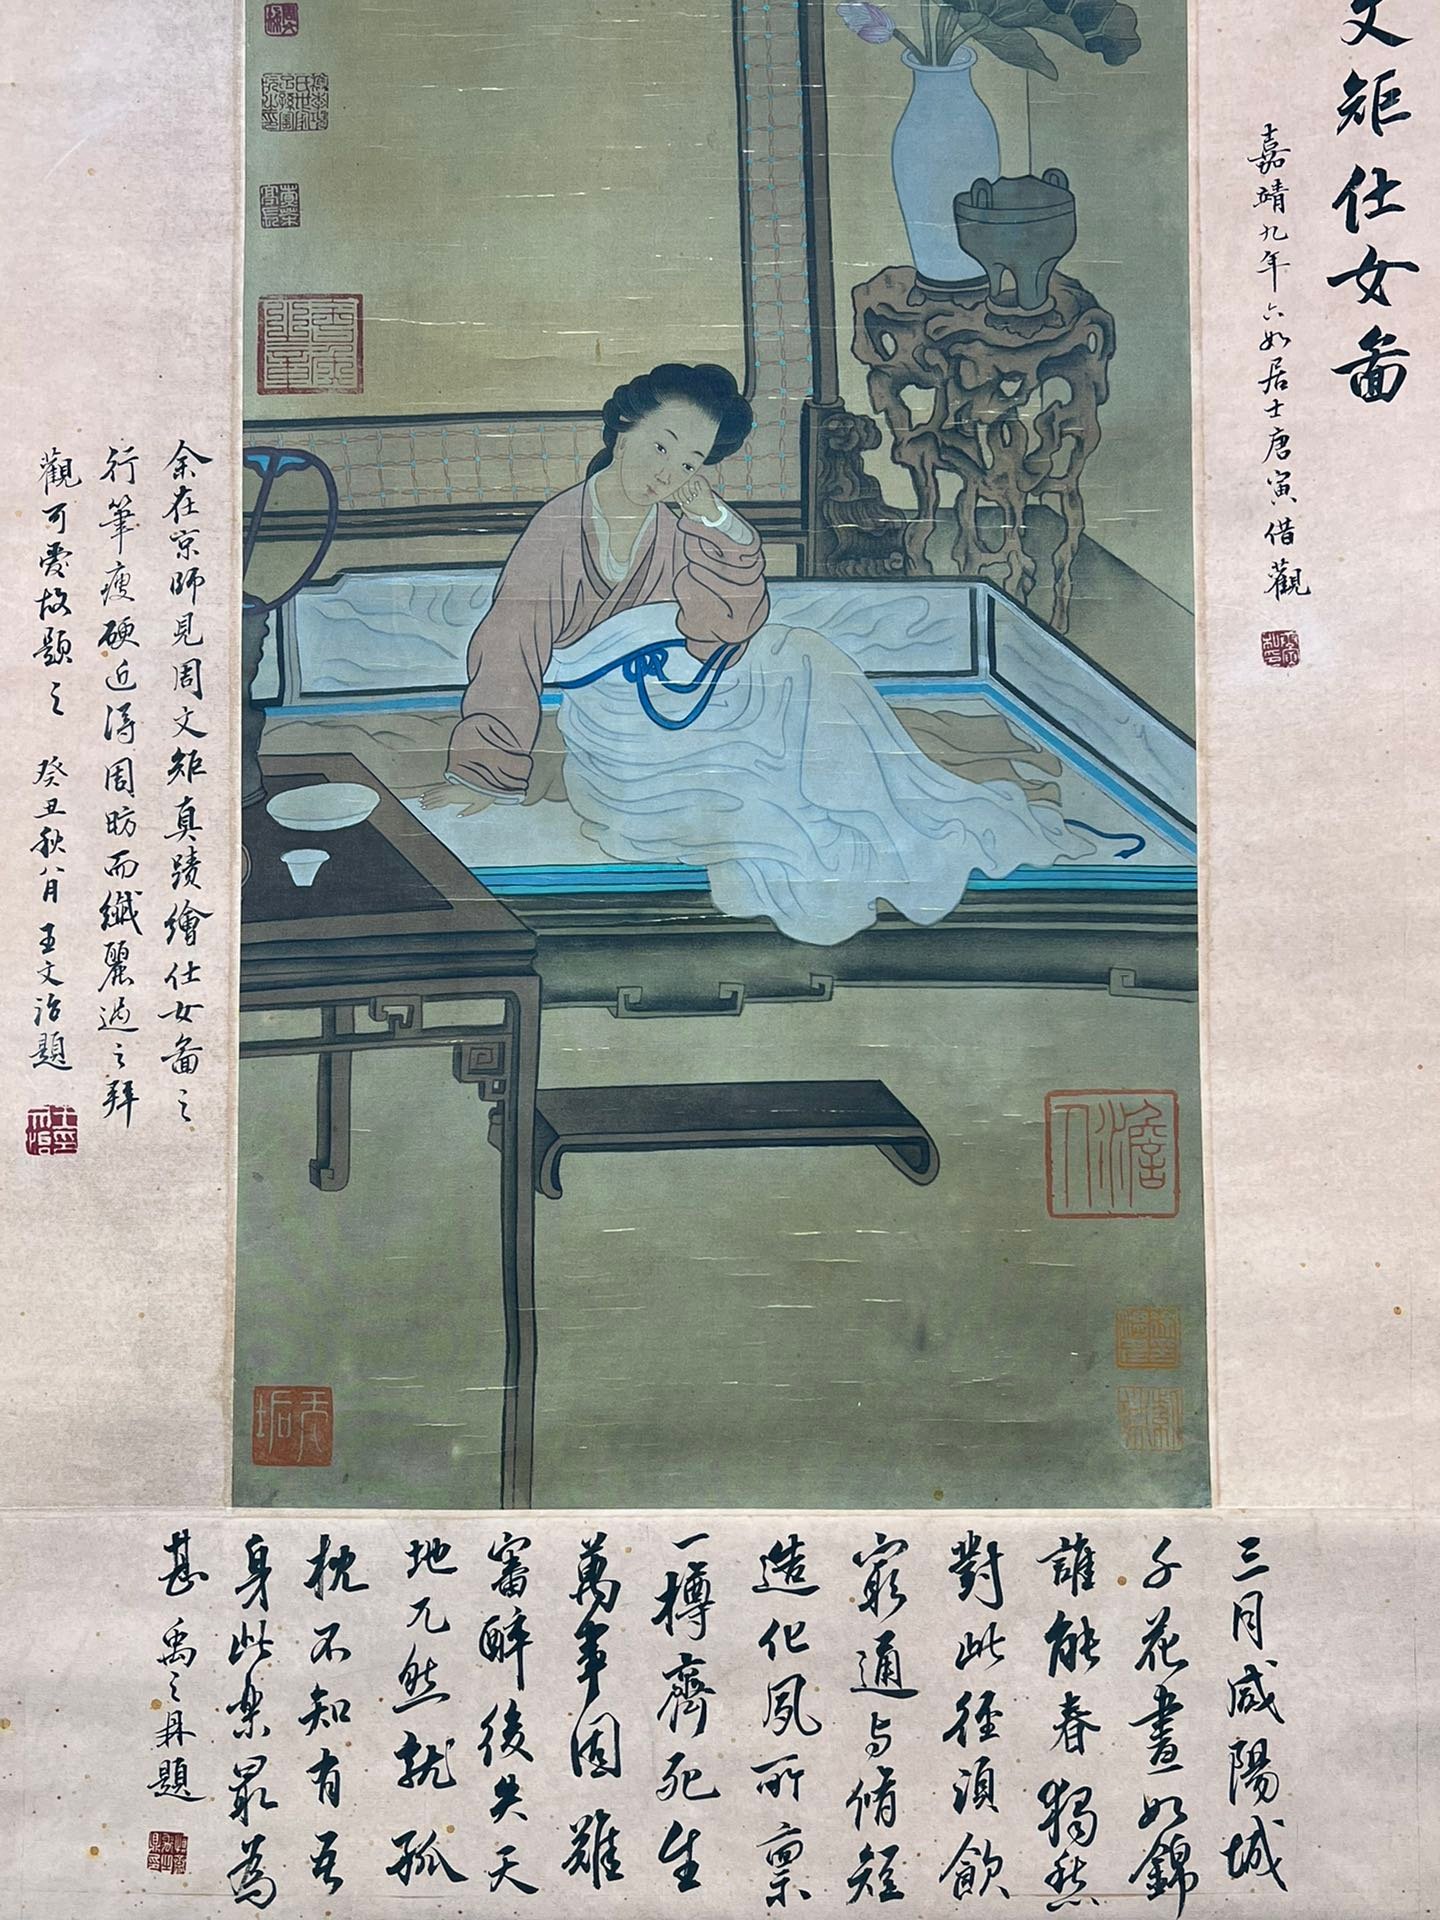 文矩仕女圖
嘉靖九年六如居士唐寅借觀
余在京師見周文矩真蹟繪仕女圖之
行筆瘦硬近得周昉而纖麗過之拜
觀可愛故題之 癸丑秋八月王文治題
三月咸陽城
千花晝如錦
誰能春獨愁
對此徑須飲
窮通与脩短
造化夙所稟
一樽齊死生
萬事固難
審醉後失天
地兀然就孤
枕不知有吾
身此樂最為
甚禹之鼎題